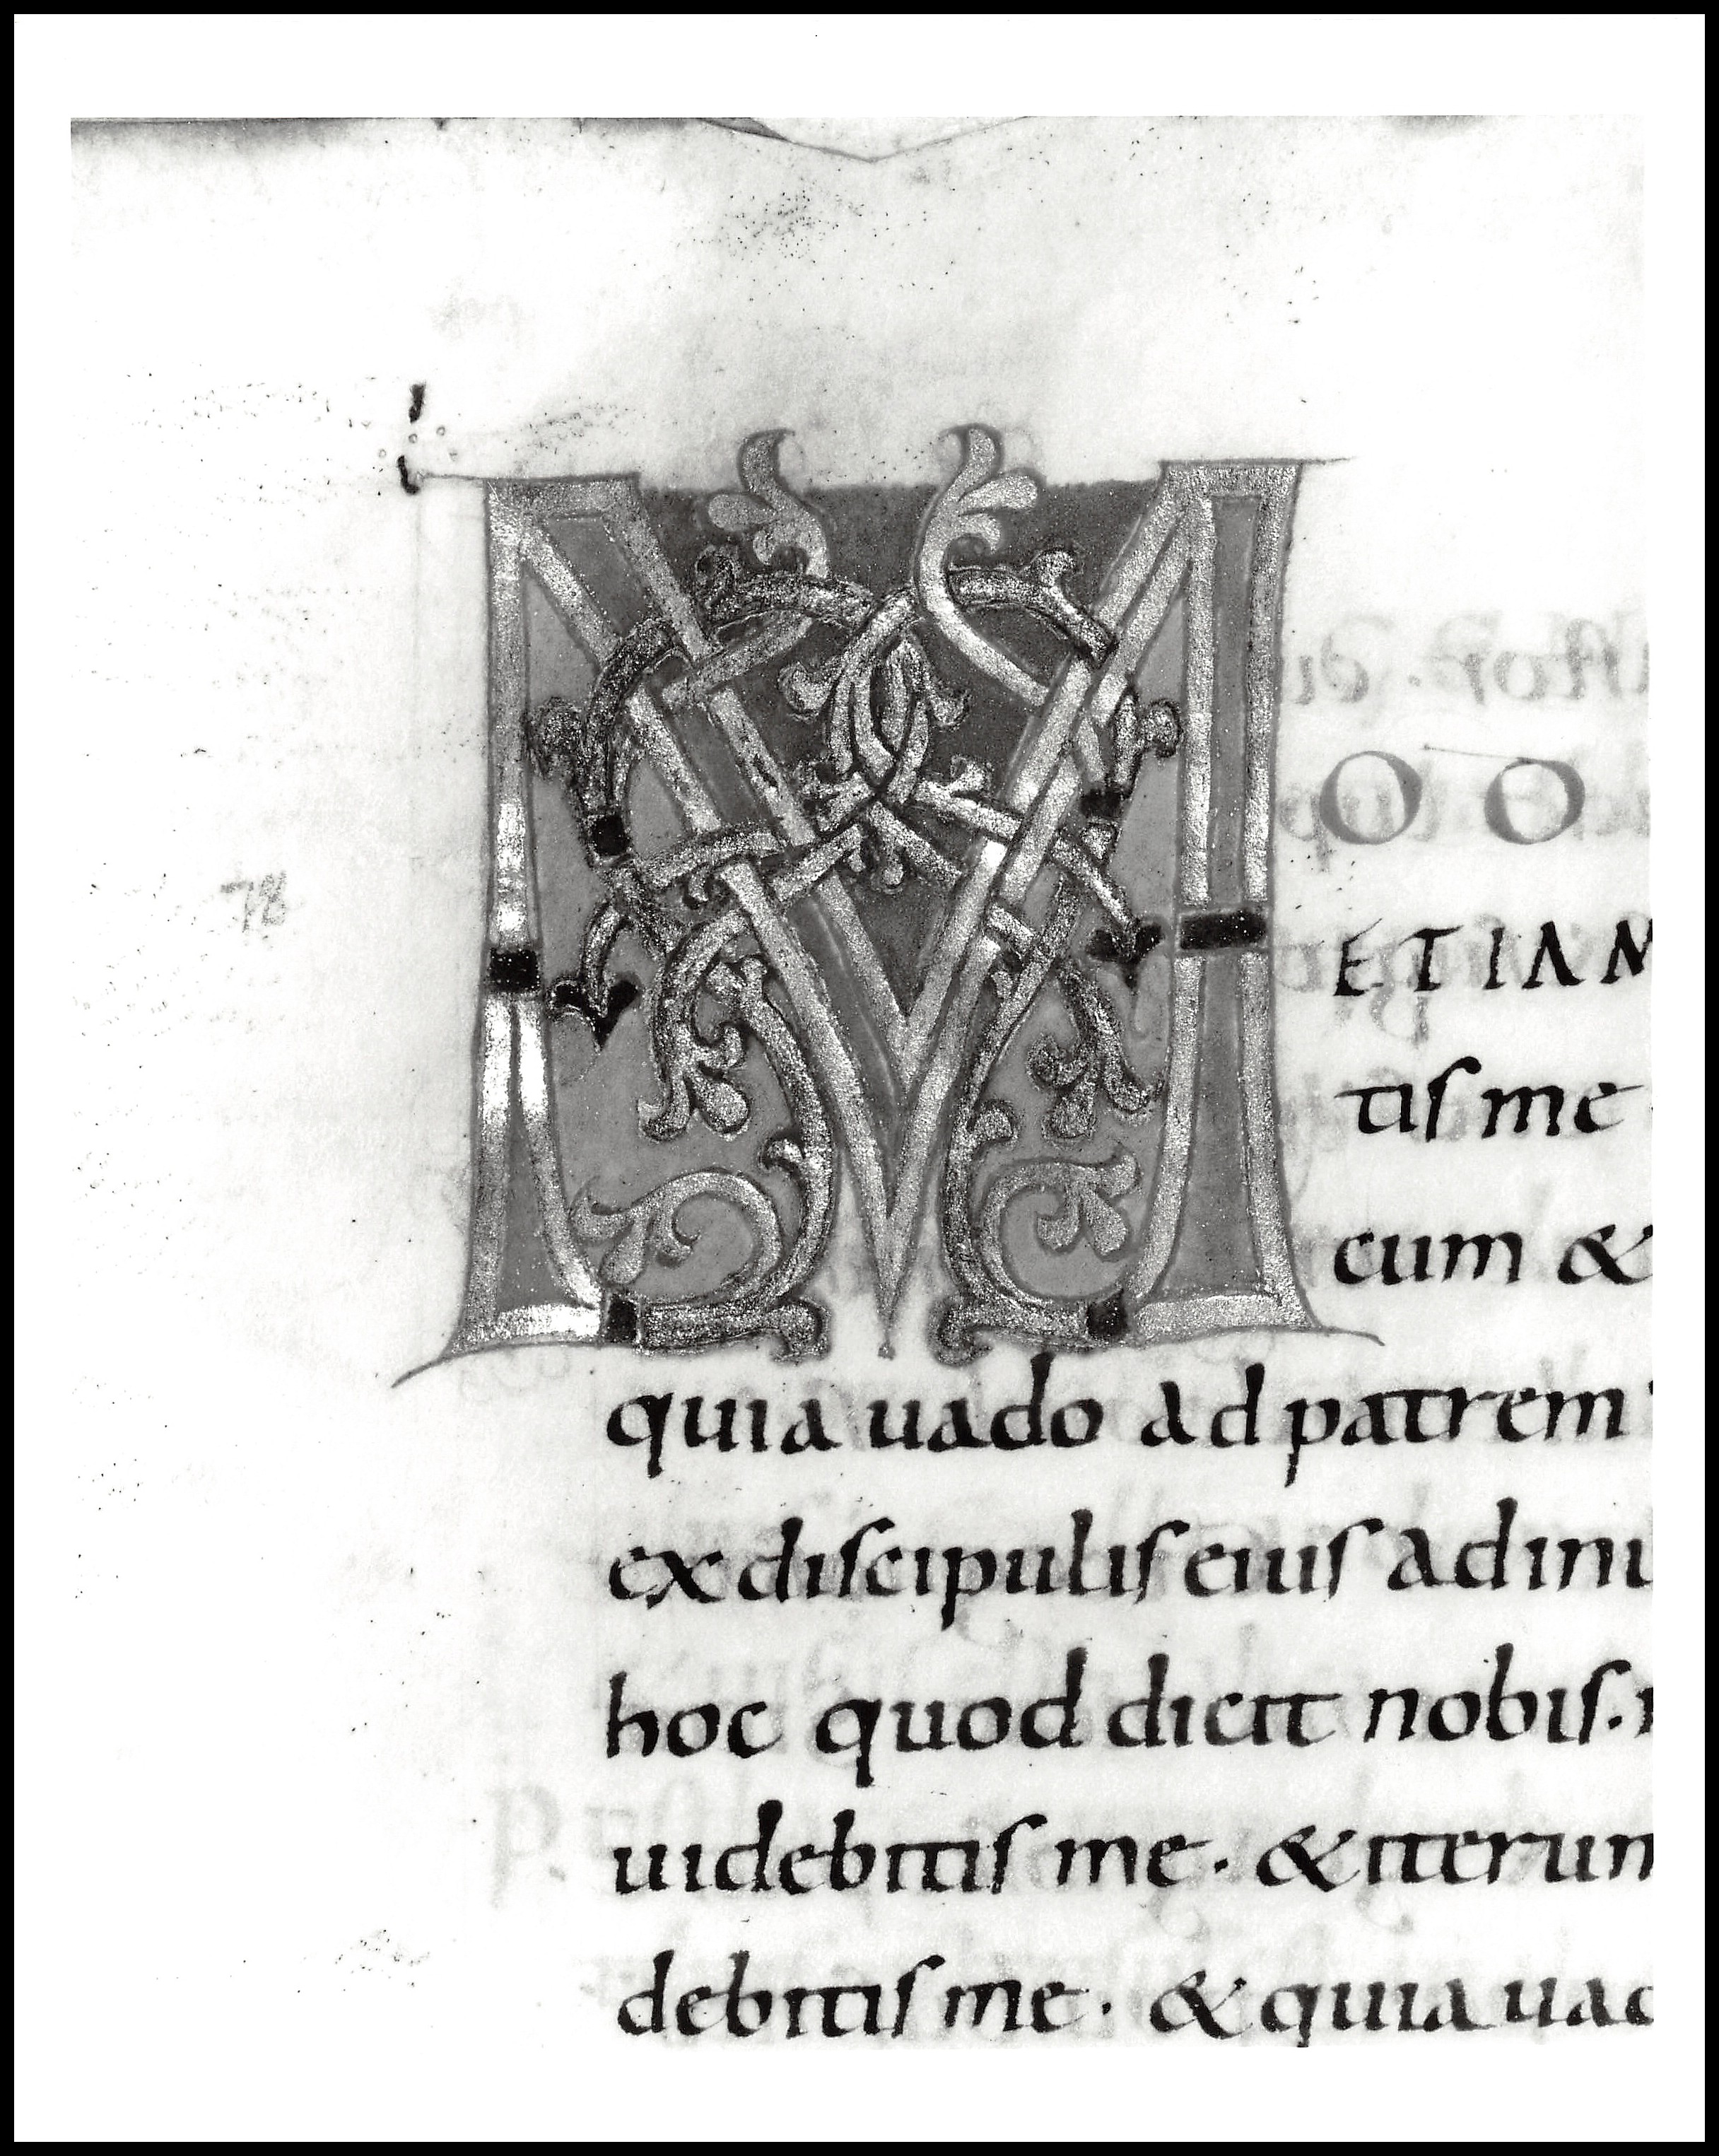 M O O
ETIAM
tis me
cum &
quia uado ad patrem
ex discipulis eius ad inui
hoc quod dicit nobis.
uidebitis me. & iterum
debitis me. & quia uad
78